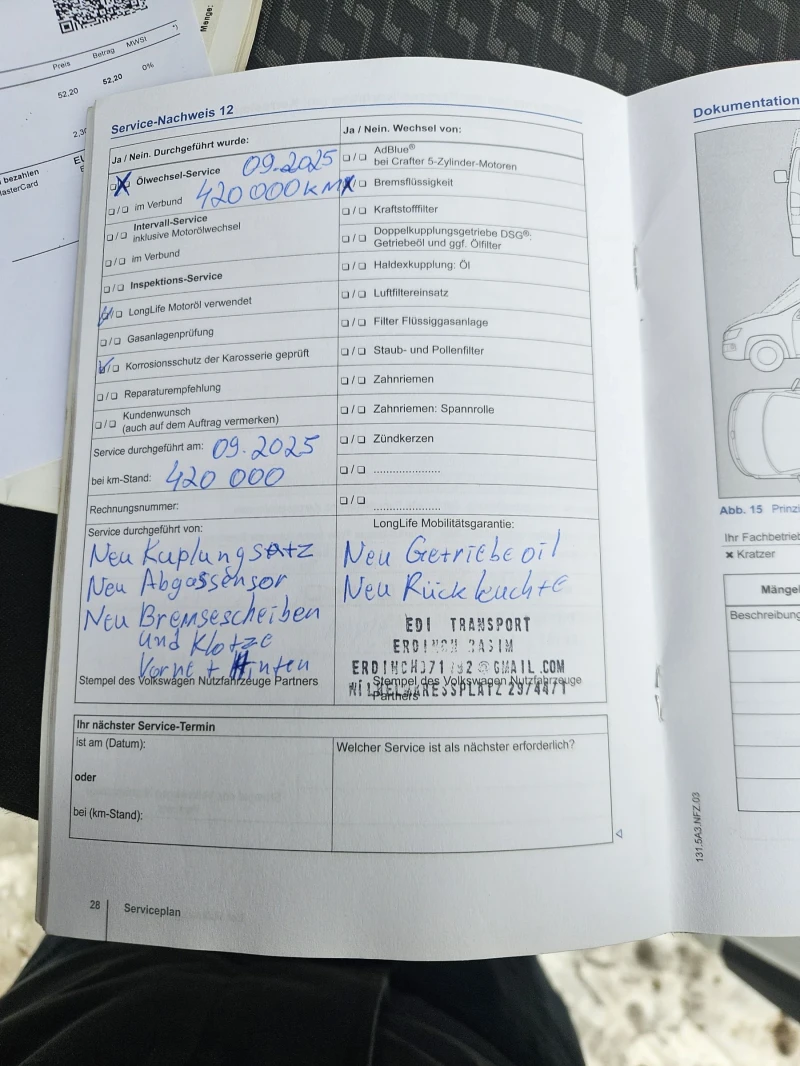 Menge:
Preis Betrag MWSt
52,20 52,20 0%
bezahlen
Service-Nachweis 12
Ja / Nein. Durchgeführt wurde:
Ölwechsel-Service 09.2025
im Verbund 420 000 KM
Intervall-Service
inklusive Motorölwechsel
im Verbund
Inspektions-Service
LongLife Motoröl verwendet
Gasanlagenprüfung
Korrosionsschutz der Karosserie geprüft
Reparaturempfehlung
Kundenwunsch
(auch auf dem Auftrag vermerken)
Service durchgeführt am: 09.2025
bei km-Stand: 420 000
Rechnungsnummer:
Ja / Nein. Wechsel von:
AdBlue®
bei Crafter 5-Zylinder-Motoren
Bremsflüssigkeit
Kraftstofffilter
Doppelkupplungsgetriebe DSG®:
Getriebeöl und ggf. Ölfilter
Haldexkupplung: Öl
Luftfiltereinsatz
Filter Flüssiggasanlage
Staub- und Pollenfilter
Zahnriemen
Zahnriemen: Spannrolle
Zündkerzen
.....................
.....................
Service durchgeführt von:
Neu Kuplungsatz
Neu Abgassensor
Neu Bremsescheiben
und Klotze
Vorne + Hinten
Stempel des Volkswagen Nutzfahrzeuge Partners
LongLife Mobilitätsgarantie:
Neu Getriebeoil
Neu Rückleuchte
EDI TRANSPORT
@GMAIL.COM
Stempel des Volkswagen Nutzfahrzeuge
Partners
Ihr nächster Service-Termin
ist am (Datum):
oder
bei (km-Stand):
Welcher Service ist als nächster erforderlich?
28 Serviceplan
Dokumentation
Abb. 15 Prinzi
Ihr Fachbetrieb
× Kratzer
Mängel
Beschreibung
131.5A3.NFZ.03